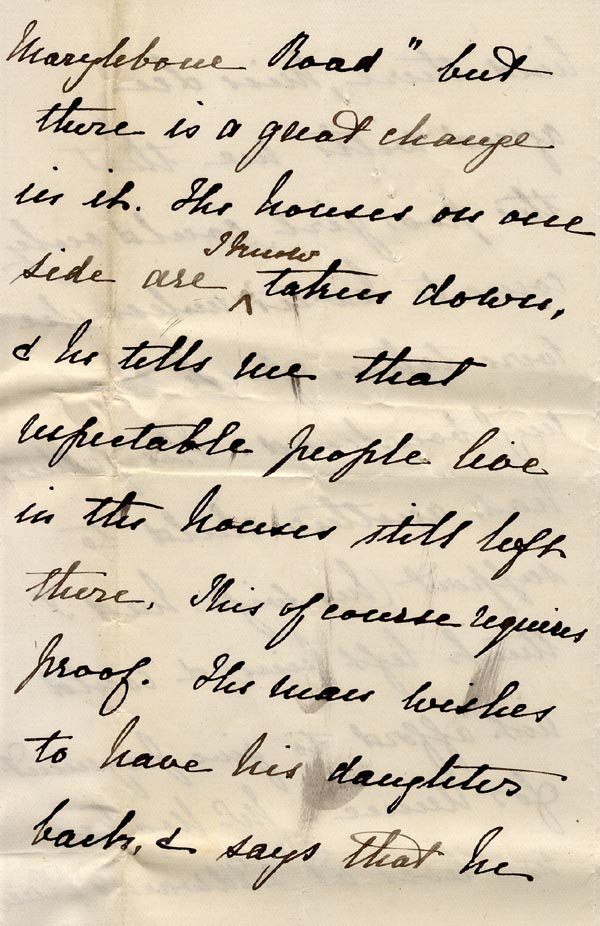 Marylebone Road" but
there is a great change
in it. The houses on one
I know
side are ^ taken down,
& he tells me that
respectable people live
in the houses still left
there. This of course requires
proof. The man wishes
to have his daughters
back, & says that he